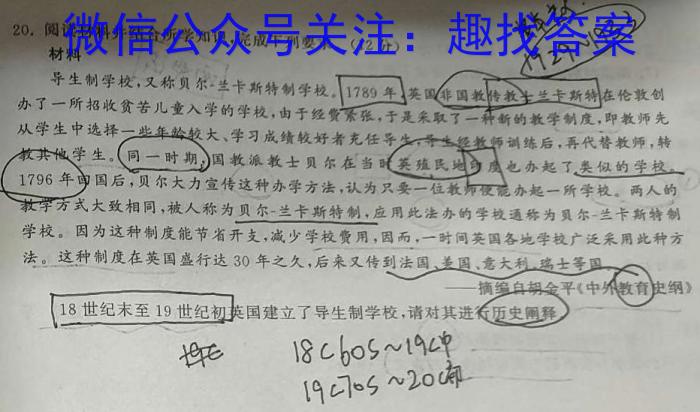 微信公众号关注：趣找答案
20. 阅读材料并结合所学知识，完成下列要求。（12分）
材料
导生制学校，又称贝尔-兰卡斯特制学校。1789年，英国非国教传教士兰卡斯特在伦敦创
办了一所招收贫苦儿童入学的学校，由于经费紧张，于是采取了一种新的教学制度，即教师先
从学生中选择一些年龄较大、学习成绩较好者充任导生，导生经教师训练后，再代替教师，转
教其他学生。同一时期，国教派教士贝尔在当时英殖民地印度也办起了类似的学校。
1796年回国后，贝尔大力宣传这种办学方法，认为只要一位教师便能办起一所学校。两人的
教学方式大致相同，被人称为贝尔-兰卡斯特制，应用此法办的学校通称为贝尔-兰卡斯特制
学校。因为这种制度能节省开支，减少学校费用，因而，一时间英国各地学校广泛采用此种方
法。这种制度在英国盛行达30年之久，后来又传到法国、美国、意大利、瑞士等国。
——摘编自胡金平《中外教育史纲》
18世纪末至19世纪初英国建立了导生制学校，请对其进行历史阐释
18C60S~19C中
19C70S~20C初